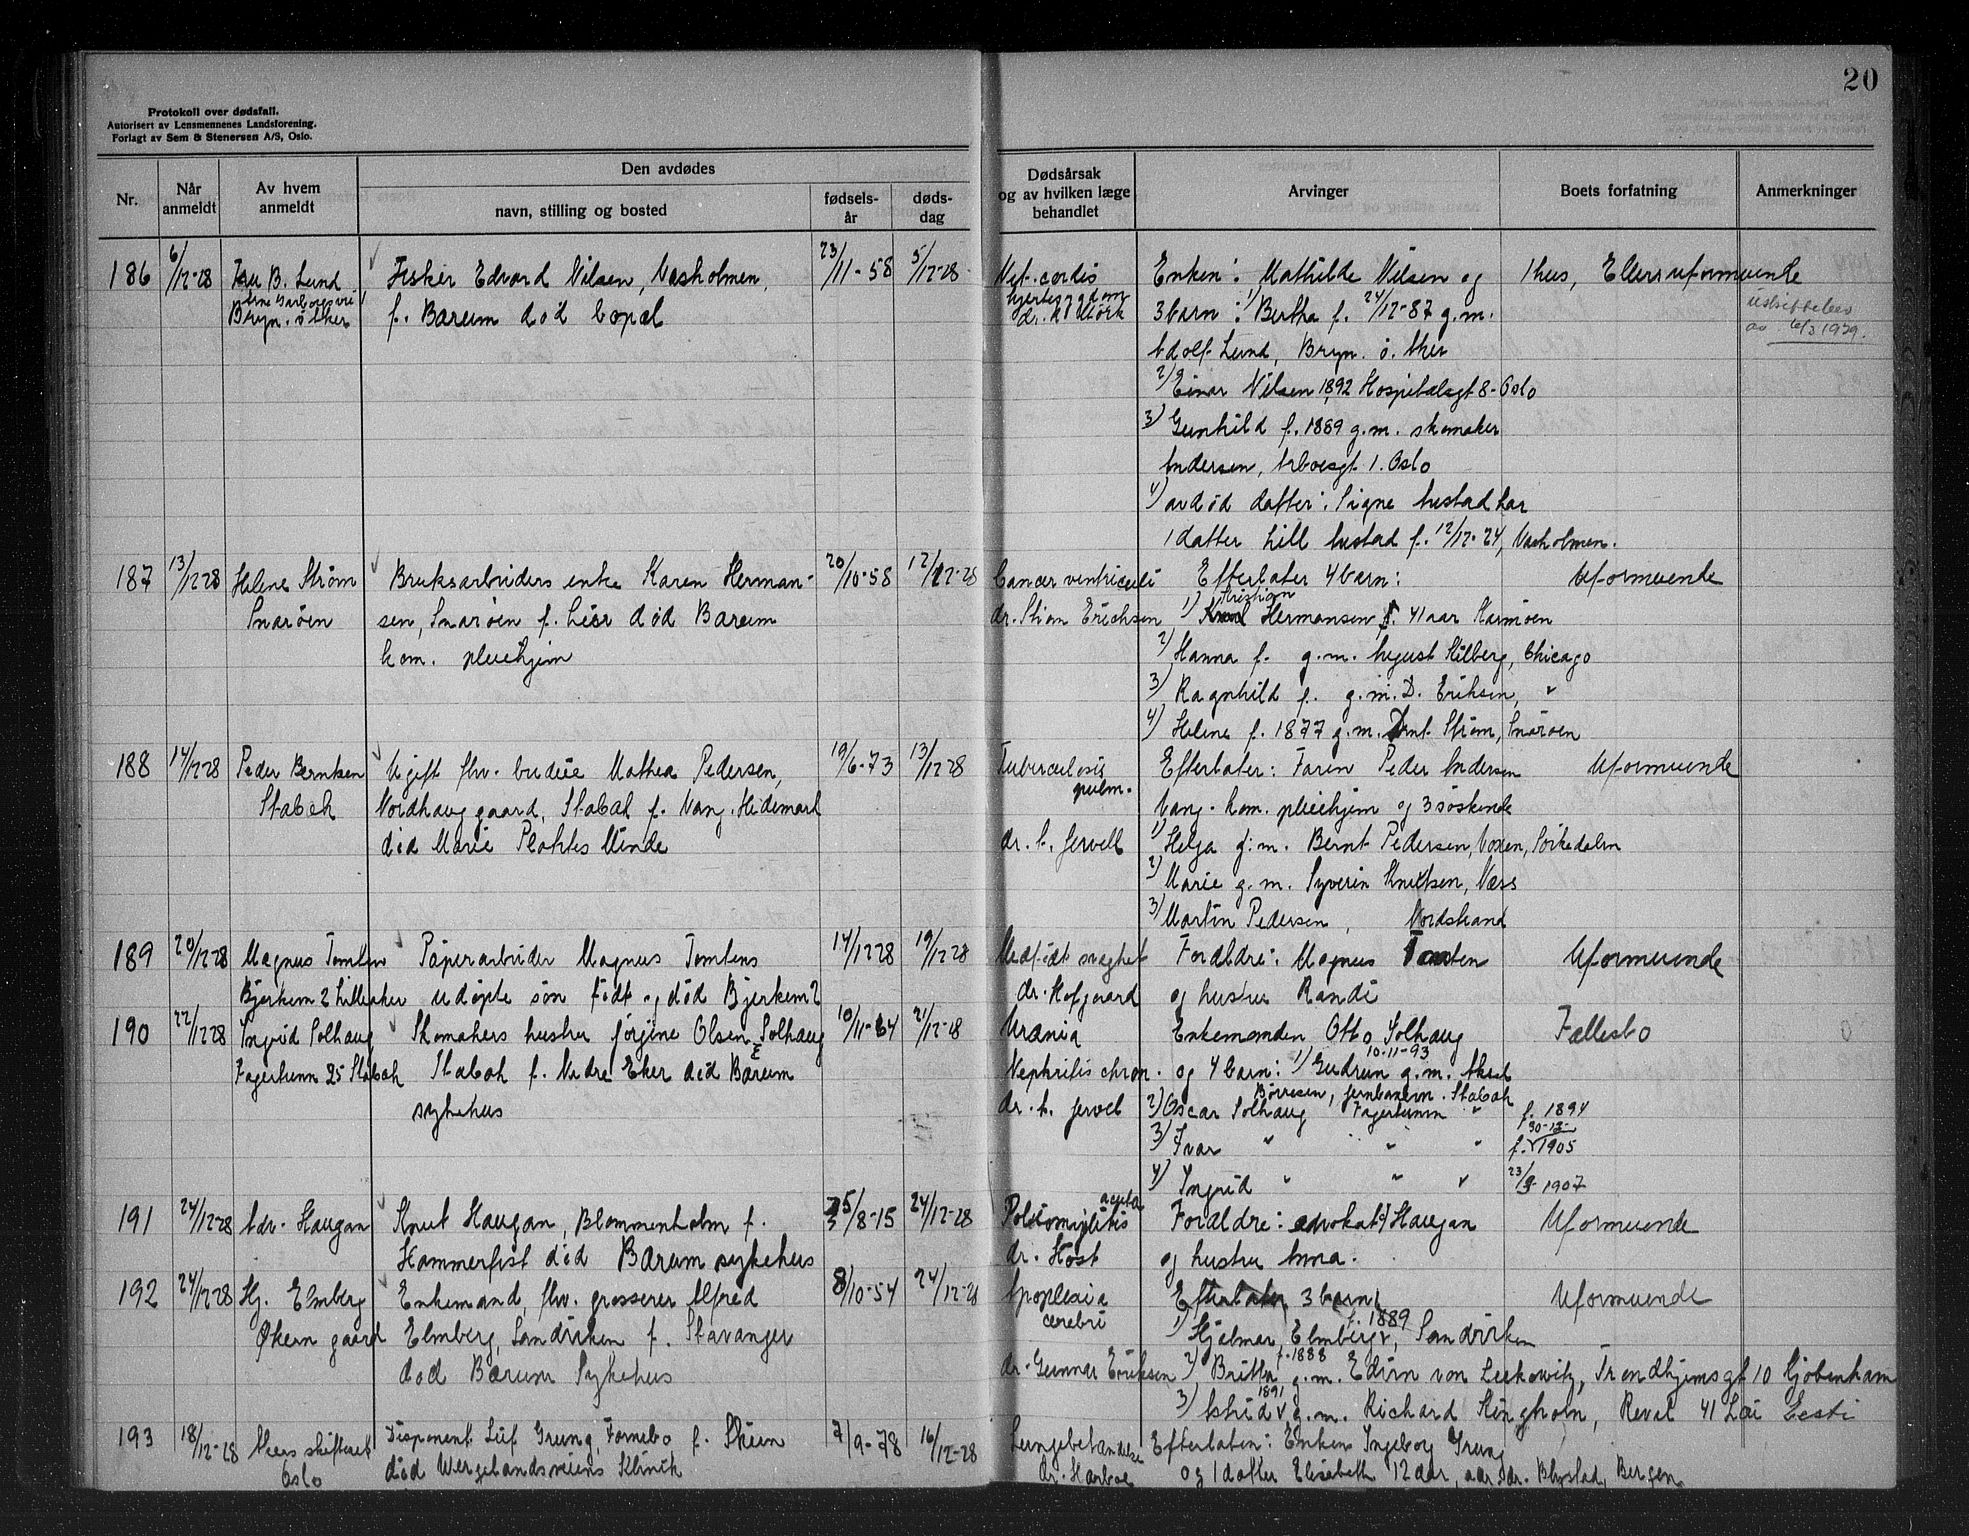 20
Protokoll over dødsfall.
Autorisert av Lensmennenes Landsforening.
Forlagt av Sem & Stenersen A/S, Oslo.
Nr. Når anmeldt Av hvem anmeldt Den avdødes
navn, stilling og bosted fødsels-år døds-dag
Dødsårsak og av hvilken læge behandlet Arvinger Boets forfatning Anmerkninger
186 6/12-28 Fru B. Lund Fisker Edvard Nilsen, Næsholmen, 23/11-58 5/12-28 Vit. cordis Enken: Mathilde Nilsen og 1 hus, Ellers uformuende
Arne Garborgsvei
Bryn. Ø Aker f. Bærum død Copal hjertesygdom dr. A Mørk 3 barn: 1) Bertha f. 24/12-87 g.m.
6/3 1929.
Adolf Lund, Bryn. Ø. Aker
2) Einar Nilsen 1892 Hospitalsgt 8 - Oslo
3) Gunhild f. 1889 g.m. skomaker
Andersen, Arboesgt 1. Oslo
4) avdød datter: Signe Austad har
1 datter Lill Austad f. 12/12-24, Næsholmen.
187 13/12 28 Helene Strøm Bruksarbeiders enke Karen Herman- 20/10-58 12/12-28 Cancer ventriculi Efterlater 4 barn: Uformuende
Snarøen sen, Snarøen f. Lier død Bærum dr. Strøm Erichsen 1) Kristian Hermansen f. 41 aar Karmøen
kom. pleiehjem 2) Hanna f. g.m. August Kilberg, Chicago
3) Ragnhild f. g.m. D. Eriksen, "
4) Helene f. 1877 g.m. Strøm, Snarøen
188 14/12 28 Peder Berntsen Ugift fhv. budeie Mathea Pedersen, 19/6-73 13/12 28 Tuberculosis pulm. Efterlater: Faren Peder Andersen Uformuende
Stabæk Nordhaug gaard, Stabæk f. Vang. Hedemark Vang. kom. pleiehjem og 3 søskende
død Marie Plahtes Minde dr. A. Jervell 1) Helga g.m. Bernt Pedersen, Voxen, Sørkedalen
2) Marie g.m. Syverin Knutsen, Næss
3) Martin Pedersen, Nordstrand
189 20/12 28 Magnus Tomten Papirarbeider Magnus Tomtens 14/12 28 19/12 28 Medfødt svaghet Forældre: Magnus Tomten Uformuende
Bjerkem 2 Lilleaker udøpte søn født og død Bjerkem 2 dr. Hofgaard og hustru Randi
190 22/12 28 Ingrid Solhaug Skomakers hustru Jørgine Olsen Solhaug 10/11-64 21/12-28 Uræmia Enkemanden Otto Solhaug Fællesbo
Fagertunn 25 Stabæk Stabæk f. Nedre Eker død Bærum Nephritis chron. og 4 barn: 1) Gudrun 10-11-93 g.m. Aksel
sykehus dr. A. Jervel Børresen, Jernbanebm. Stabæk
2) Oscar Solhaug Fagertunn " f. 1894
3) Ivar " " " 30-12- f. 1905
4) Ingrid " " " 23/9-1907
191 24/12-28 Adv. Haugan Knut Haugan, Blommenholm f. 5/8-15 24/12-28 Poliomyelitis acuta Forældre: advokat Haugan Uformuende
Hammerfest død Bærum sykehus dr. Høst og hustru Anna.
192 24/12 28 Hj. Elmberg Enkemand, fhv. grosserer Alfred 8/10-54 24/12-28 Apoplexia Efterlater 3 barn Uformuende
Økern gaard Elmberg, Sandviken f. Stavanger cerebri 1) Hjalmar Elmberg, f. 1889 Sandviken
død Bærum Sykehus dr. Gunnar Eriksen 2) Britta f. 1888 g.m. Edvin von Leskowitz, Trondhjemsgt 10 Kjøbenhavn
3) Astrid 1891 g.m. Richard Kinghorn, Reval 41 Lai Eesti
193 18/12-28 Akers skifteret Disponent Leif Grung, Fornebo f. Skien 7/9-78 16/12-28 Lungebetændelse Efterlater: Enken Ingeborg Grung
Oslo død Wergelandsveiens Klinik Dr. Harboe og 1 datter Elisabeth 12 aar, adr. dr. Blystad, Bergen